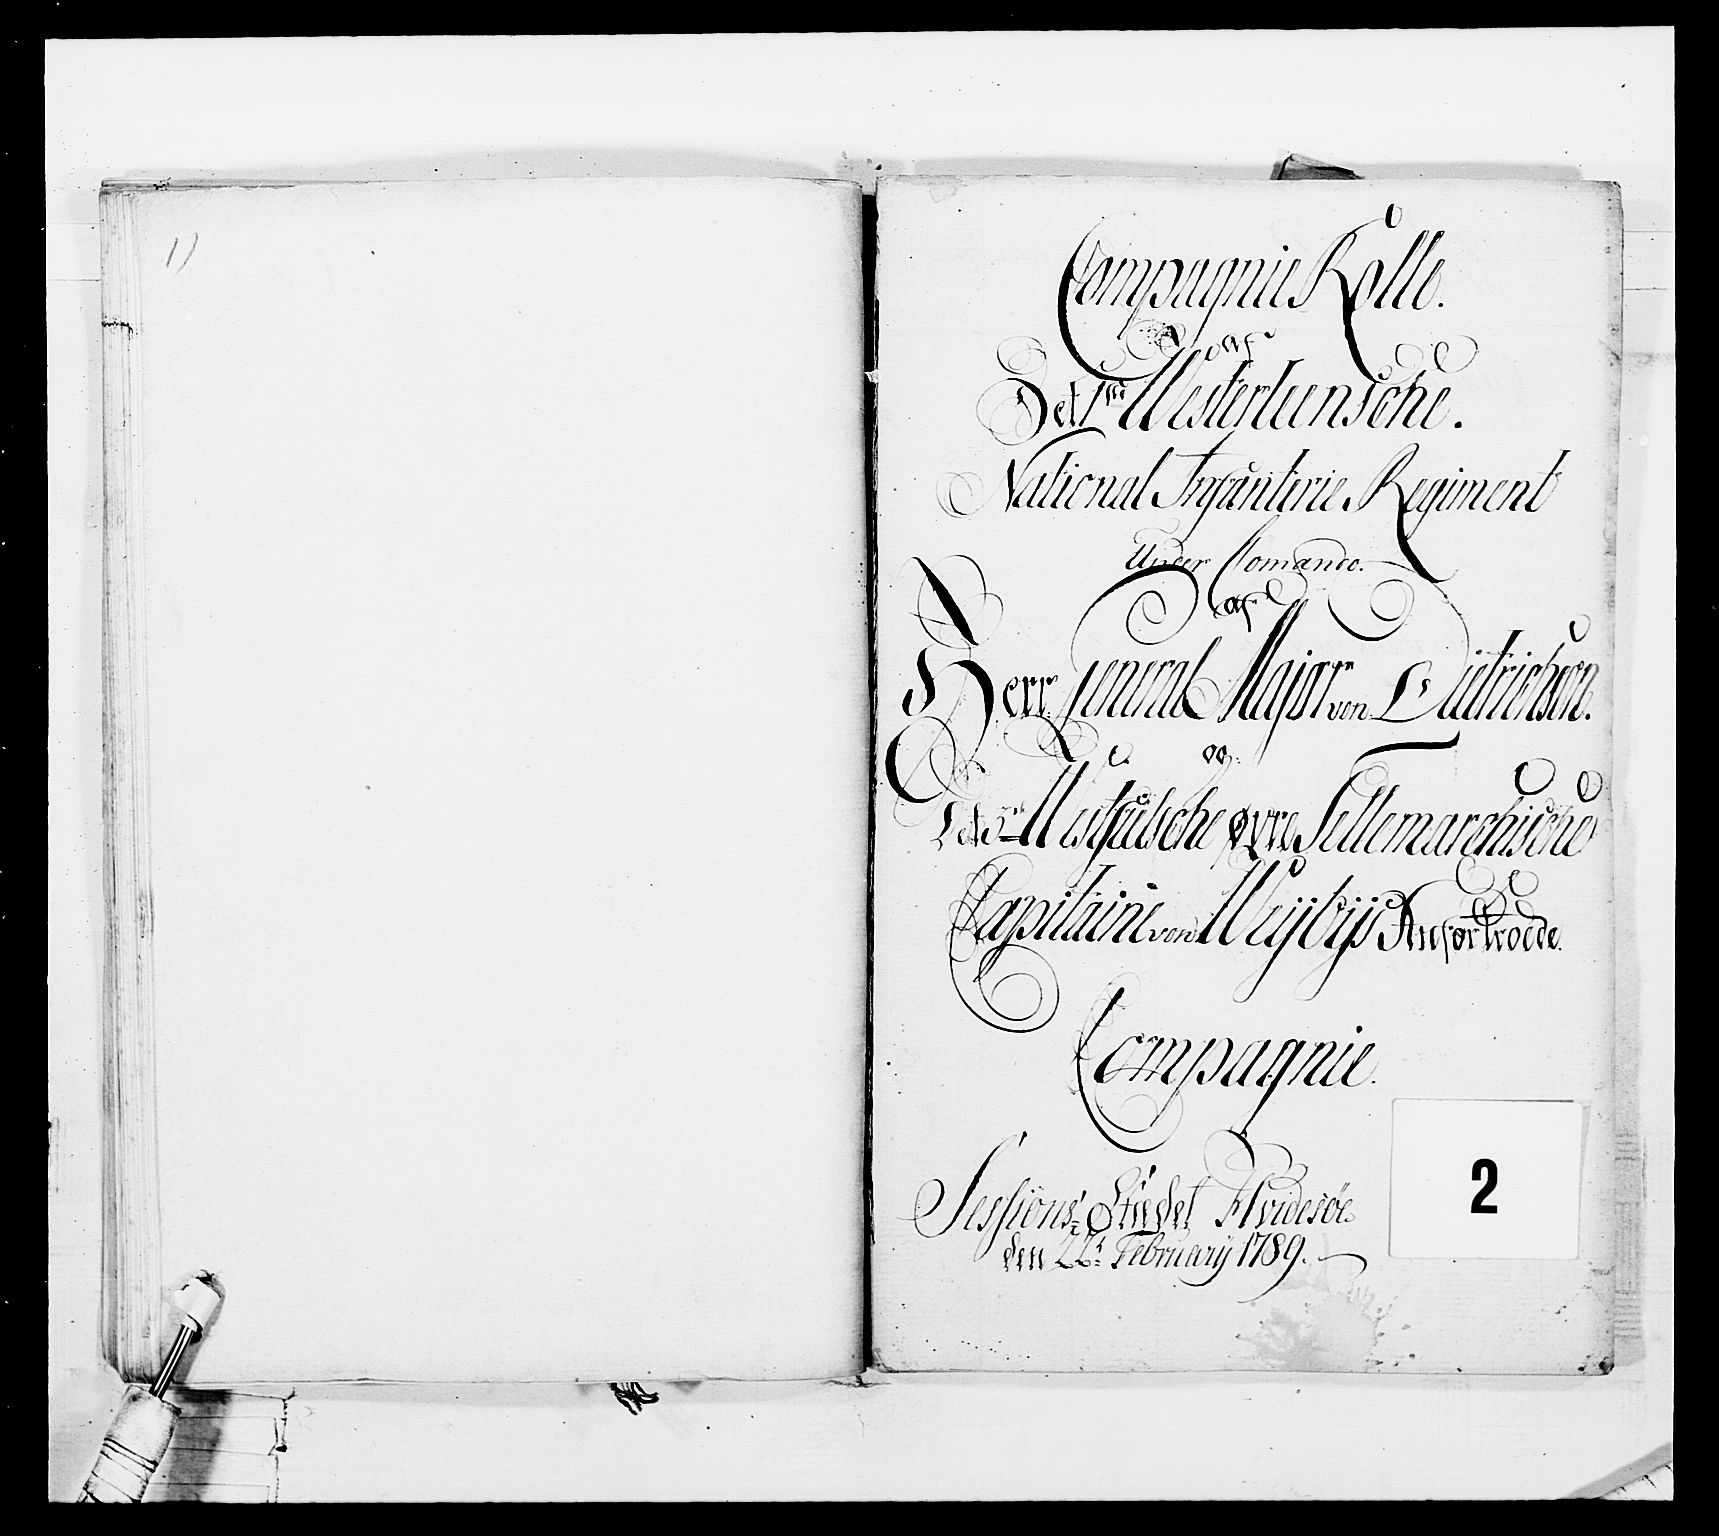 1)
Compagnie Rolle.
af
Det 1ste Westerleensche.
National Infanterie Regiment
Under Comando.
af
Herr General Major von Dietrichson.
og
Westfielsche øvre Tellemarchische
Capitaine von Weÿbÿe Anfortroede.
Compagnie.
Sessions Stædet Hvidesøe
den 22t Februarij 1789.
2